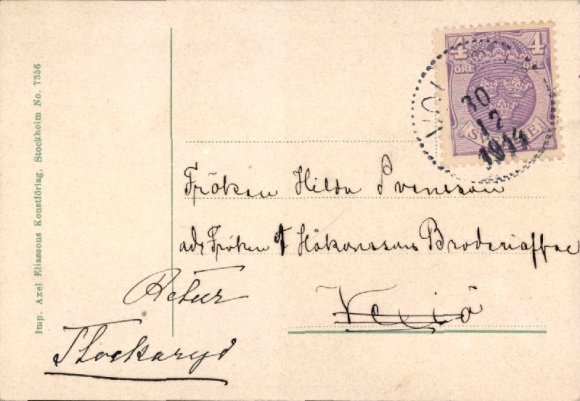 Imp. Axel Eliassons Konstförlag, Stockholm No. 7356
4 4
ÖRE
30
12
1914
Fröken Hilda Svensson
adr Fröken Håkanssons Broderiaffär
Vexiö
Retur
Stockaryd